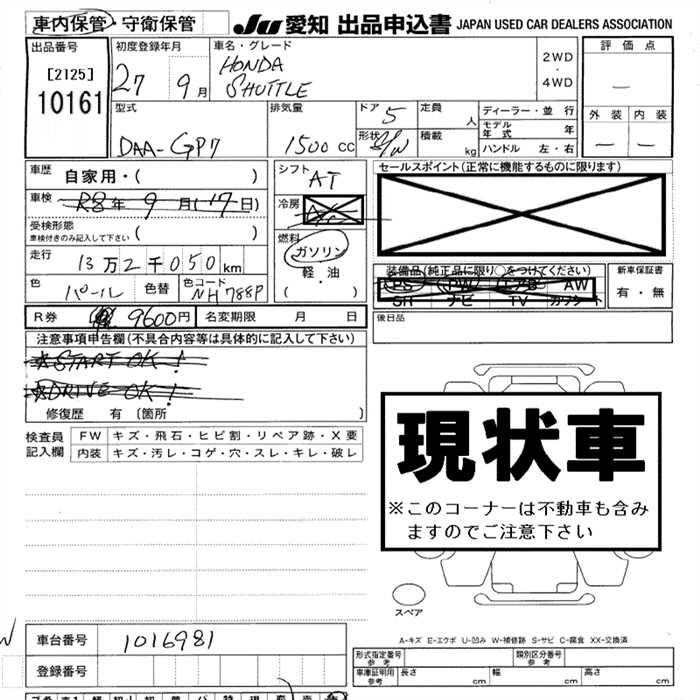 車内保管・守衛保管
JU 愛知 出品申込書 JAPAN USED CAR DEALERS ASSOCIATION
出品番号
[2125]
10161
初度登録年月
27 9月
車名・グレード
HONDA
SHUTTLE
2WD
・
4WD
評価点
—
外装 内装
— —
型式
DAA-GP7
排気量
1500 CC
ドア 5
形状 S/W
定員 人
積載 kg
ディーラー・並行
モデル年式 年
ハンドル 左・右
車歴 自家用・( )
車検 R8年 9月(17日)
受検形態
車検付きのみ記入して下さい ( )
走行 13万2千050km
色 パール 色替 色コード NH788P
シフト AT
冷房
燃料
ガソリン
軽・油
( )
セールスポイント(正常に機能するものに限ります)
装備品(純正品に限り○をつけてください)
PS PW エアB AW
SR ナビ TV カワシート
新車保証書
有・無
後日品
R券 9600円 名変期限 月 日
注意事項申告欄(不具合内容等は具体的に記入して下さい)
☆START OK!
☆DRIVE OK!
修復歴 有 〔箇所 〕
検査員記入欄
FW キズ・飛石・ヒビ割・リペア跡・X要
内装 キズ・汚レ・コゲ・穴・スレ・キレ・破レ
現状車
※このコーナーは不動車も含み
ますのでご注意下さい
スペア
A-キズ E-エクボ U-凹み W-補修跡 S-サビ C-腐食 XX-交換済
車台番号 1016981
登録番号
形式指定番号
参考
類別区分番号
参考
車庫証明用
参考
長さ cm 幅 cm 高さ cm